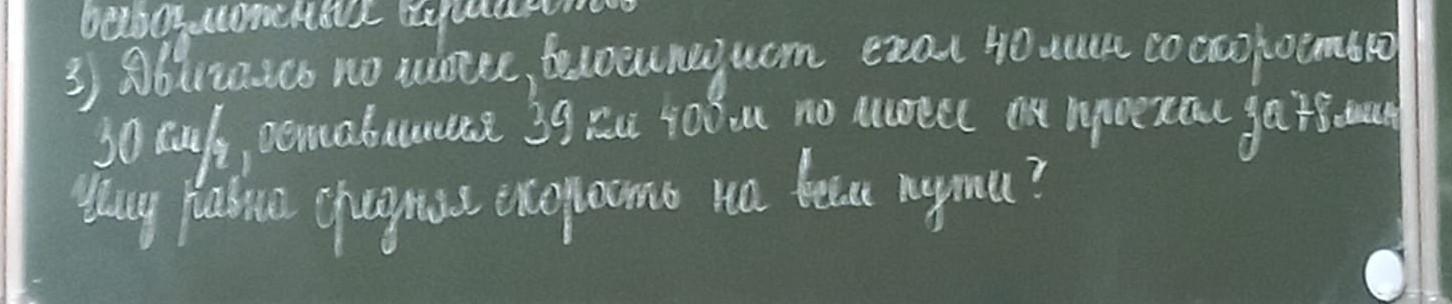 всевозможных варианта
3) Двигаясь по шоссе, велосипедист ехал 40 мин со скоростью
30 км/ч, оставшиеся 39 км 400 м по шоссе он проехал за 78 мин
Чему равна средняя скорость на всем пути?